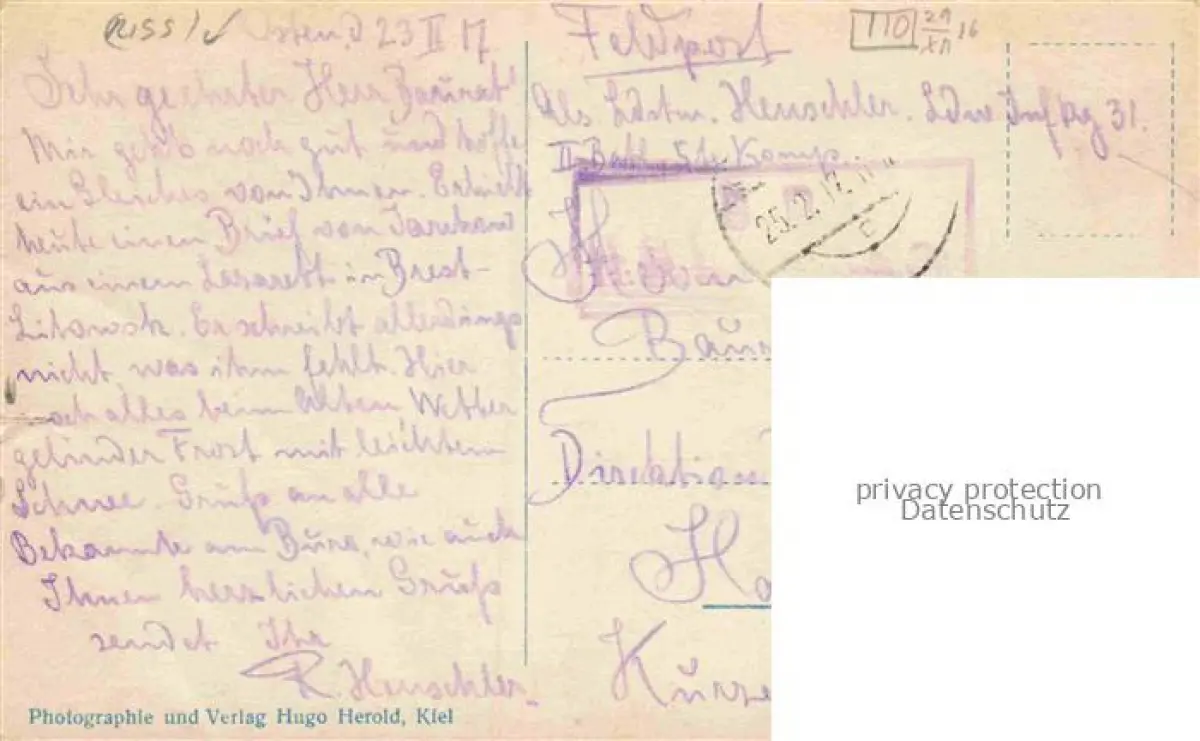 (RISS)
Osten, d 23 II 17
Sehr geehrter Herr Baurat
Mir geht's noch gut und hoffe
ein Gleiches von Ihnen. Erhielt
heute einen Brief von
aus einem Lazarett in Brest-
Litowsk. Er schreibt allerdings
nicht, was ihm fehlt. Hier
noch alles beim Alten, Wetter
gelinder Frost mit leichtem
Schnee. Gruß an alle
Bekannte am Büro, wie auch
Ihnen herzlichen Gruß
sendet Ihr
R. Henschler.
Photographie und Verlag Hugo Herold, Kiel
Feldpost
110 29/XII 16
Abs. Ldstm. Henschler. Ldw Inf Rg 31.
II Batl. 5te Komp.
25.2.17
C
Herrn
Baur
Direktion
Ha
Kürze
privacy protection
Datenschutz